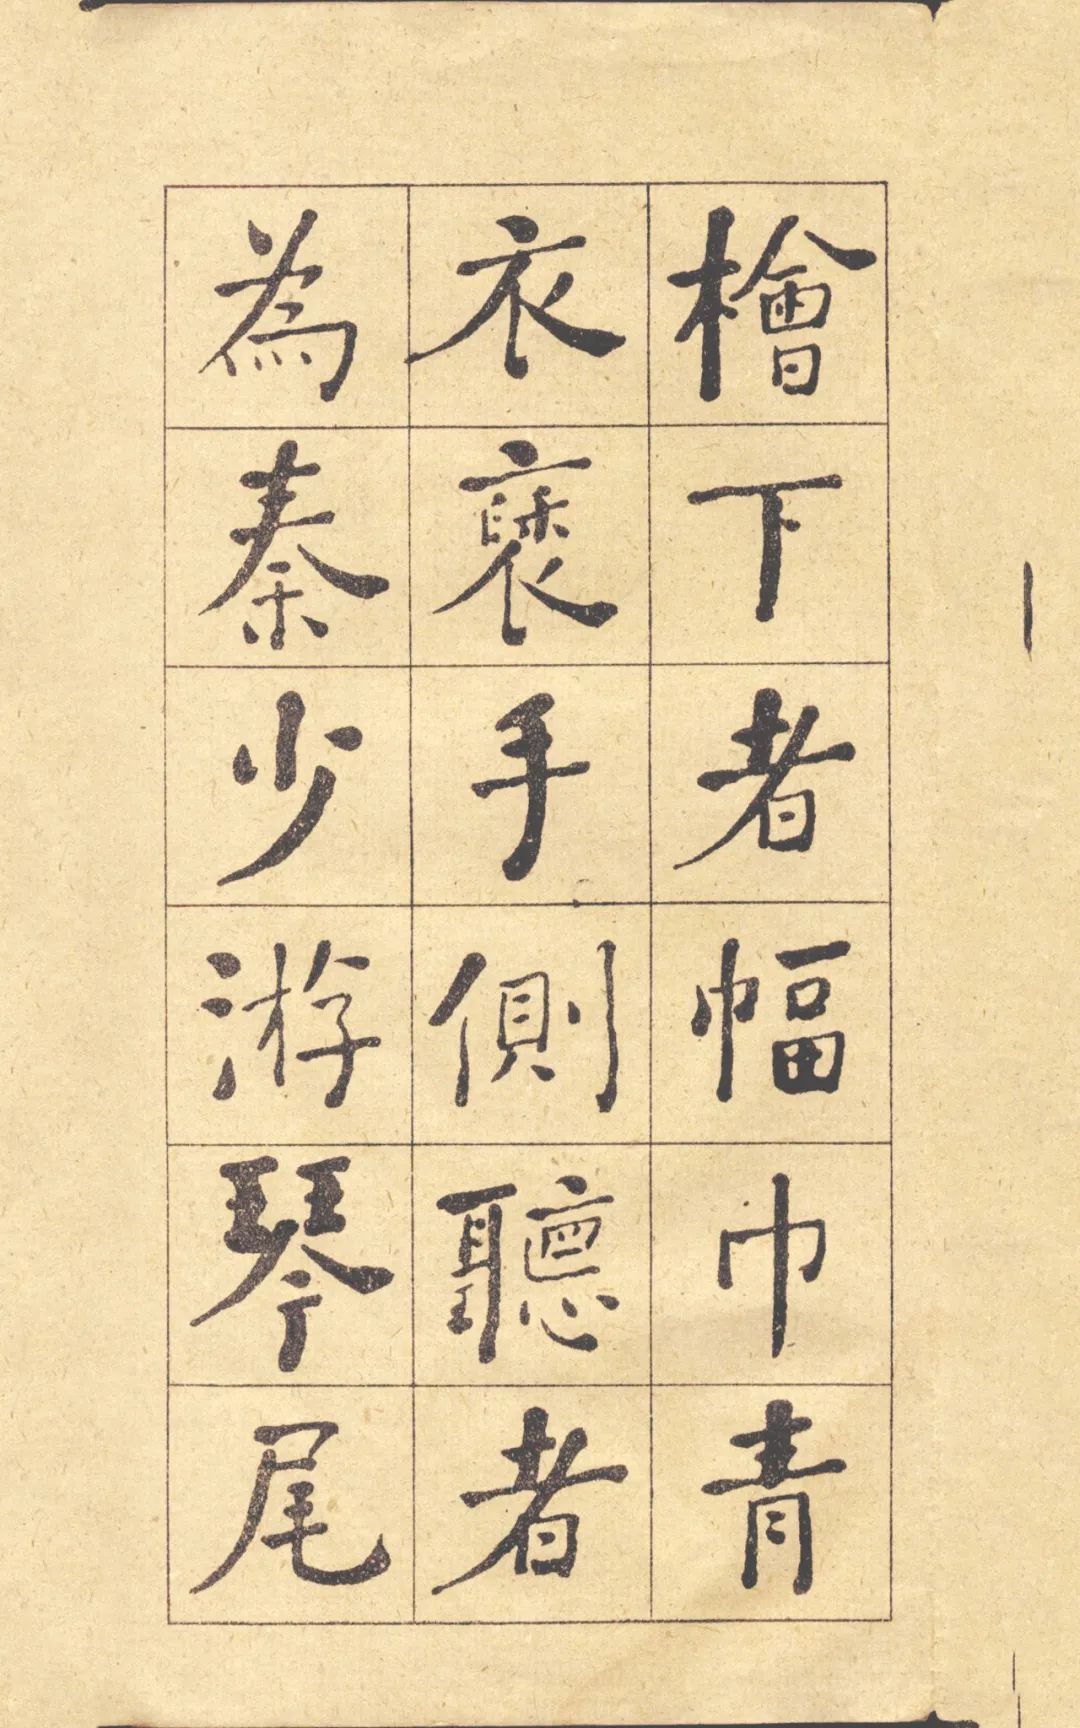 檜下者幅巾青
衣褎手側聽者
為秦少游琴尾